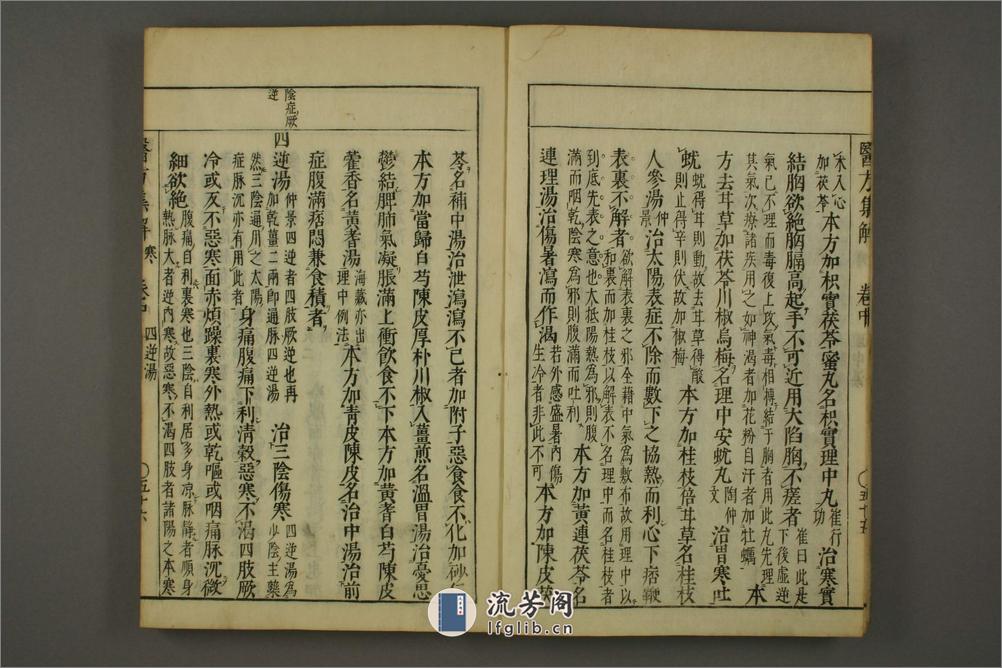 醫方集解 卷中 五十五
朮入心加茯苓 本方加枳實茯苓蜜丸名枳實理中丸 崔行功 治寒實
結胸欲絶胸膈高起手不可近用大陷胸不瘥者 崔曰此是下後虛逆
氣已不理而毒復上攻氣毒相摶結于胸者用此丸先理其氣次療諸疾用之如神渴者加花粉自汗者加牡蠣 本
方去甘草加茯苓川椒烏梅名理中安蚘丸 陶仲文 治胃寒吐
蚘 蚘得甘則動故去甘草得酸則止得辛則伏故加椒梅 本方加桂枝倍甘草名桂枝
人參湯 仲景 治太陽表症不除而數下之協熱而利心下痞鞕
表裏不解者 欲解表裏之邪全藉中氣爲敷布故用理中以和裏而加桂枝以解表不名理中而名桂枝者
到底先表之意也大抵陽熱爲邪則腹滿而咽乾陰寒爲邪則腹滿而吐利 本方加黃連茯苓名
連理湯治傷暑瀉而作渴 若外感盛暑內傷生冷者非此不可 本方加陳皮茯
苓名補中湯治泄瀉瀉不已者加附子惡食食不化加砂仁
本方加當歸白芍陳皮厚朴川椒入薑煎名溫胃湯治憂思
鬱結脾肺氣凝脹滿上衝飲食不下本方加黃耆白芍陳皮
藿香名黃耆湯 海藏亦出理中例法 本方加青皮陳皮名治中湯治前
症腹滿痞悶兼食積者
陰症厥逆
四逆湯 仲景四逆者四肢厥逆也再加乾薑二兩即通脉四逆湯 治三陰傷寒 四逆湯爲少陰主藥
然三陰通用之太陽症脉沉亦有用此者 身痛腹痛下利清穀惡寒不渴四肢厥
冷或反不惡寒面赤煩躁裏寒外熱或乾嘔或咽痛脉沉微
細欲絶 腹痛自利裏寒也三陰自利居多身凉脉靜者順身熱脉大者逆内寒故惡寒不渴四肢者諸陽之本寒
醫方集解 寒 卷中 四逆湯 五十六
流芳阁
lfglib.cn